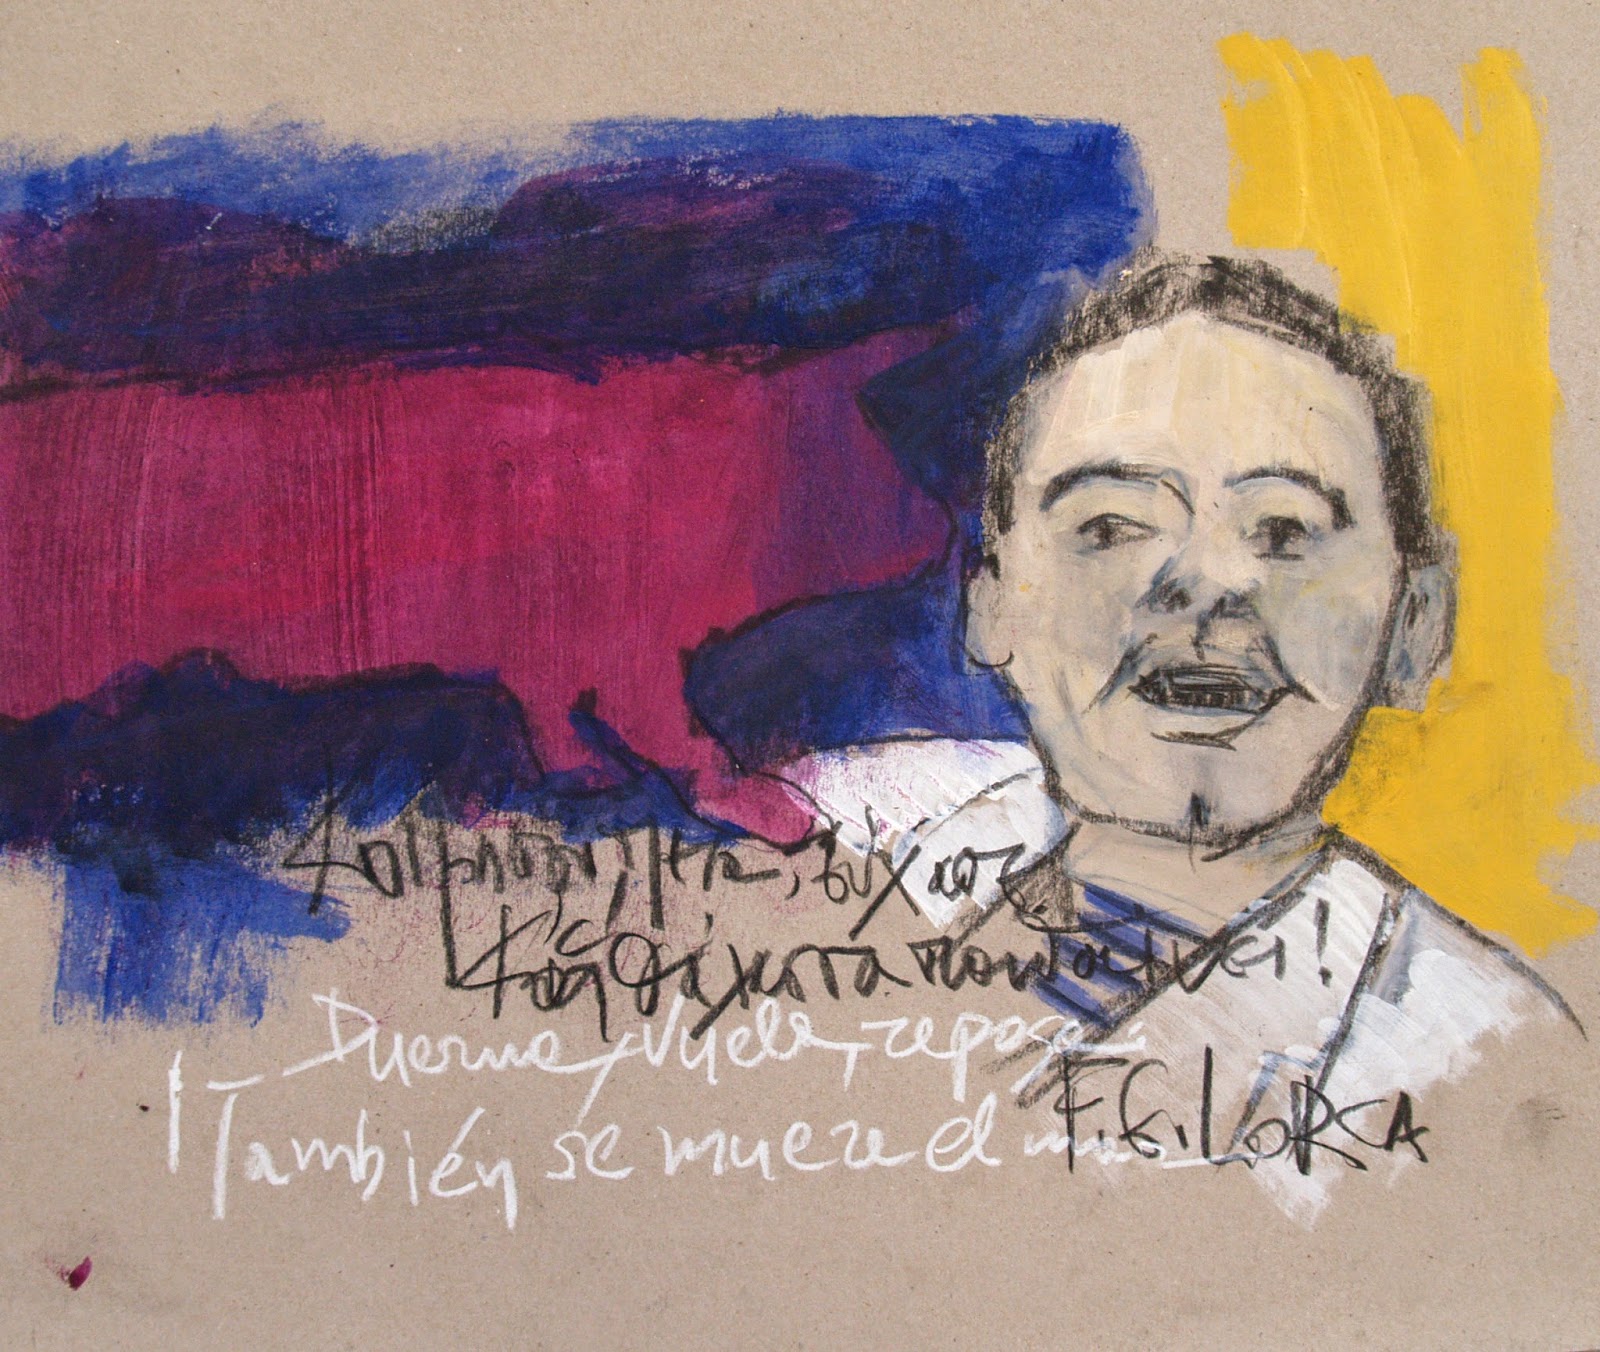 Κοιμήσου, πέτα, ησύχασε
Και η θάλασσα πεθαίνει!
Duerme, vuela, reposa:
¡También se muere el mar
F.G. LORCA